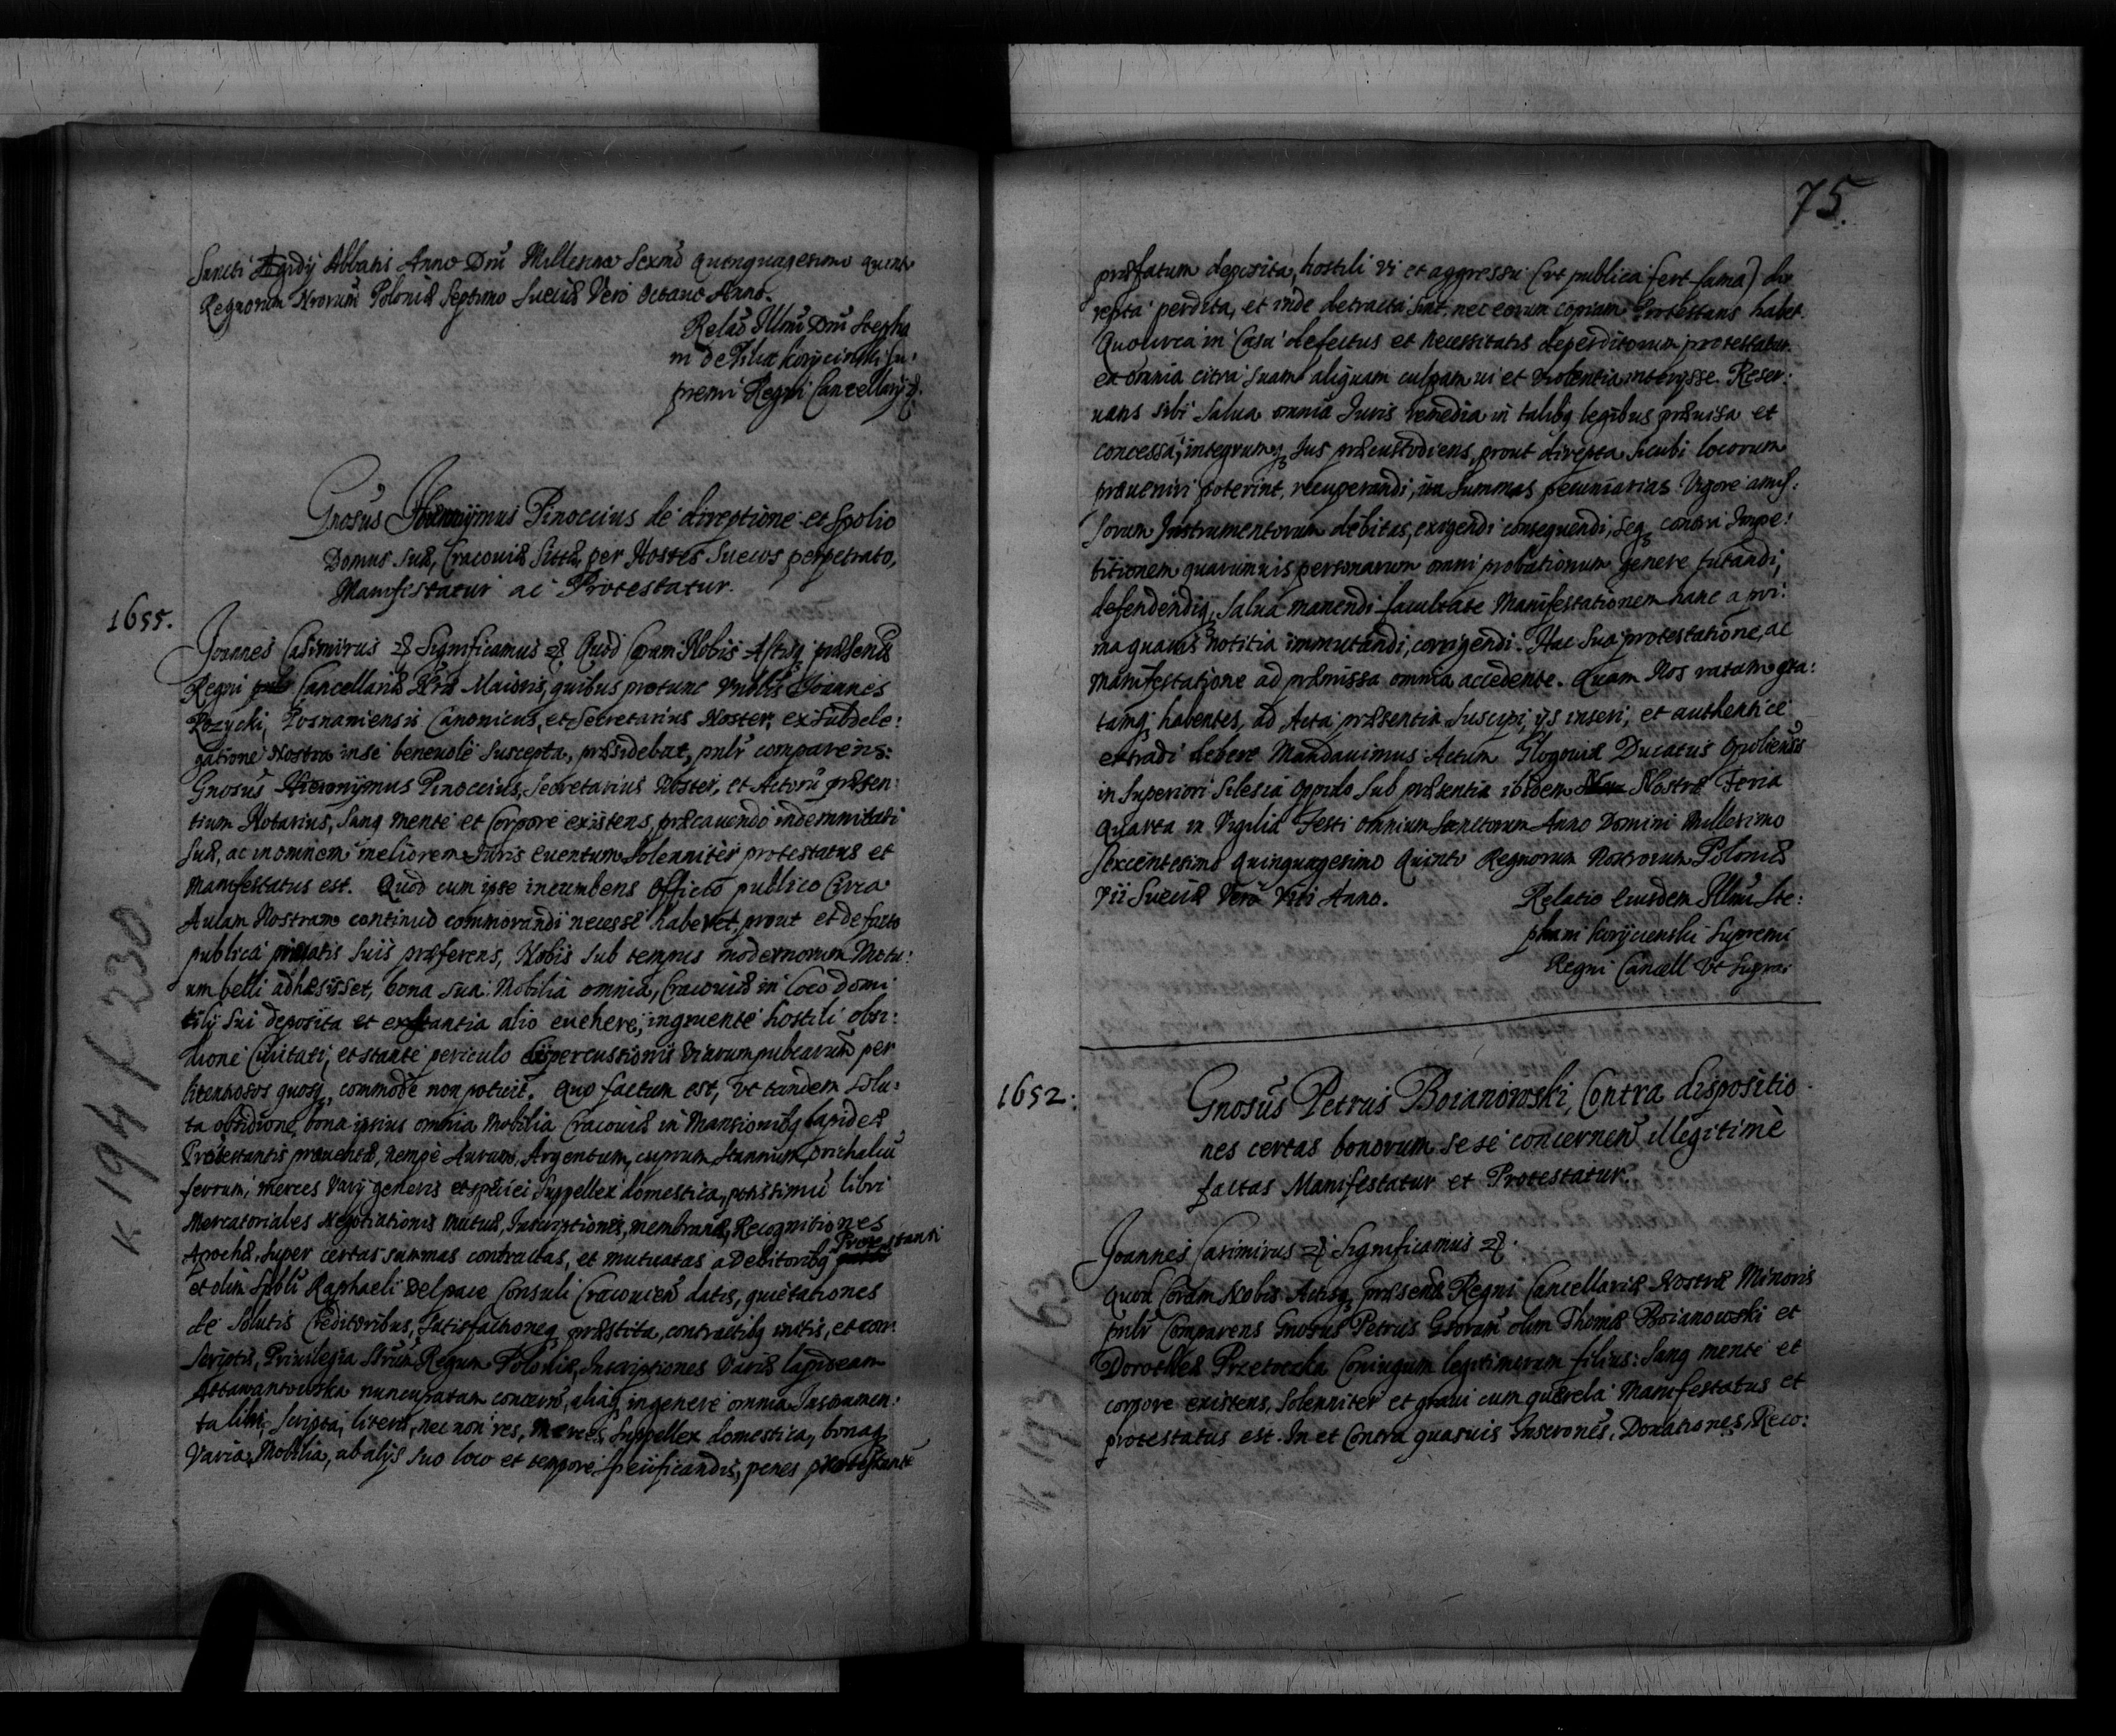 Sancti Ægidÿ Abbatis Anno Dnĩ Millesimo Sexmõ quinquagesimo quint
Regnorum Nrorum Poloniæ Septimo Sueciæ Vero Octauo Anno.
Relaõ Illmi Dnĩ Stepha
ni de Pilca Korycinski Su:
premi Regni Cancellarÿ &.
Gnosus Hieronÿmus Pinoccius de direptione et Spolio
Domus Suæ, Cracouiæ Sittæ, per Hostes Suecos perpetrato,
Manifestatur ac Protestatur.
1655.
Joannes Casimirus & Significamus & Quod Coram Nobis Actisq præsentis
Regni Cancellariæ Nræ Maioris, quibus protunc Vnblis Joannes
Rozycki, Posnaniensis Canonicus, et Secretarius Noster, ex Subdele:
gatione Nostra in se beneuole Suscepta, præsidebat, pnlr comparens:
Gnosus Hieronÿmus Pinoccius, Secretarius Noster, et Actorũ præsen:
tium Notarius, Sanq mente et Corpore existens, præcauendo indemnitati
Suæ, ac in omnem meliorem Juris euentum Solenniter protestatus et
Manifestatus est. Quod cum ipse incumbens Officio publico Circa
Aulam Nostram continuò commorandi necesse haberet, prout et de facto
publica priuatis Suis præferens, Nobis Sub tempus modernorum Motu:
um belli adhæsisset, bona Sua Mobilia omnia, Cracouiæ in Loco domi
cilÿ Sui deposita et exstantia alio euehere, ingruente hostili obsi:
dione Ciuitati, et stante periculo Viarum publicarum per
licentiosos quosq, commode non potuit. Quo factum est, Vt tandem Solu:
ta obsidione, bona ipsius omnia Mobilia Cracouiæ in Mansionibq lapideæ
Protestantis præuentæ, nempe Aurum, Argentum, cuprum, Stannum, orichalcũ
ferrum, merces Varÿ generis et speciei Suppellex domestica, potissimũ libri
Mercatoriales Negotiationis Mutuæ, Inscriptiones, membranæ, Recognitiones
Apochæ, Super certas summas contractas, et mutuatas a Debitoribq Protestanti
et olim Spbli Raphaeli Delpace Consuli Cracouien datis, quietationes
de Solutis Creditoribus, Satisfactioneq præstita, contractibq initis, et con
scriptis, Priuilegia Srũm Regum Poloniæ, Inscriptiones Variæ lapideam
nuncupatam concern, aliaq in genere omnia Instrumen:
ta libri, Scripta, literæ, nec non res, merces, Suppellex domestica, bonaq
Varia, Mobilia, ab alÿs Suo loco et tempore Specificandis, penes protestante
K 194 f 230.
75.
præfatum deposita, hostili vi et aggressu (vt publica fert fama) di
repta perdita, et inde detracta sint, nec eorum copiam Protestans habet.
Quocirca in Casu defectus et necessitatis deperditorum protestatur.
ea omnia citra Suam aliquam culpam ui et violentia interÿsse. Reser:
uans sibi Salua omnia Juris remedia in talibq legibus præuisa et
concessa, integrumq Jus præcustodiens, prout direpta Sicubi locorum
præueniri poterint, recuperandi, Summas pecuniarias Vigore amis:
sorum Instrumentorum debitas, exigendi consequendi, Seq contra Impe:
titionem quarumuis personarum omni probationum genere tutandi,
defendendiq, Salua manendi facultate Manifestationem hanc a pri:
ma quauis notitia immutandi, corrigendi. Hac Sua protestatione, ac
Manifestatione ad præmissa omnia accedente. Quam Nos ratam gra:
tamq habentes, ad Acta præsentia Suscipi, ÿs inseri, et authentice
extradi debere Mandauimus. Actum Glogouiæ Ducatus Opoliensis
in Superiori Silesia Oppido Sub præsentia ibidem Nostra Feria
Quarta in Vigilia Festi Omnium Sanctorum Anno Domini Millesimo
Sexcentesimo Quinquagesimo Quinto Regnorum Nostrorum Poloniæ
Vii Sueciæ Vero Viii Anno.
Relatio Eiusdem Illmi Ste:
phani Korÿcinski Supremi
Regni Cancell Vt Supra.
1652.
Gnosus Petrus Boianowski, Contra dispositio
nes certas bonorum se se concernen illegitimè
factas Manifestatur et Protestatur.
Joannes Casimirus & Significamus &.
Quod Coram Nobis Actisq præsen Regni Cancellariæ Nostræ Minoris
pnlr Comparens Gnosus Petrus Gsorum olim Thomæ Boianowski et
Dorotheæ Przetoczka Coniugum legitimorum filius: Sanq mente et
corpore existens, Solenniter et graui cum querela Manifestatus et
protestatus est. In et Contra quasuis Inscrones, Donationes, Reco:
K. 193 f 63